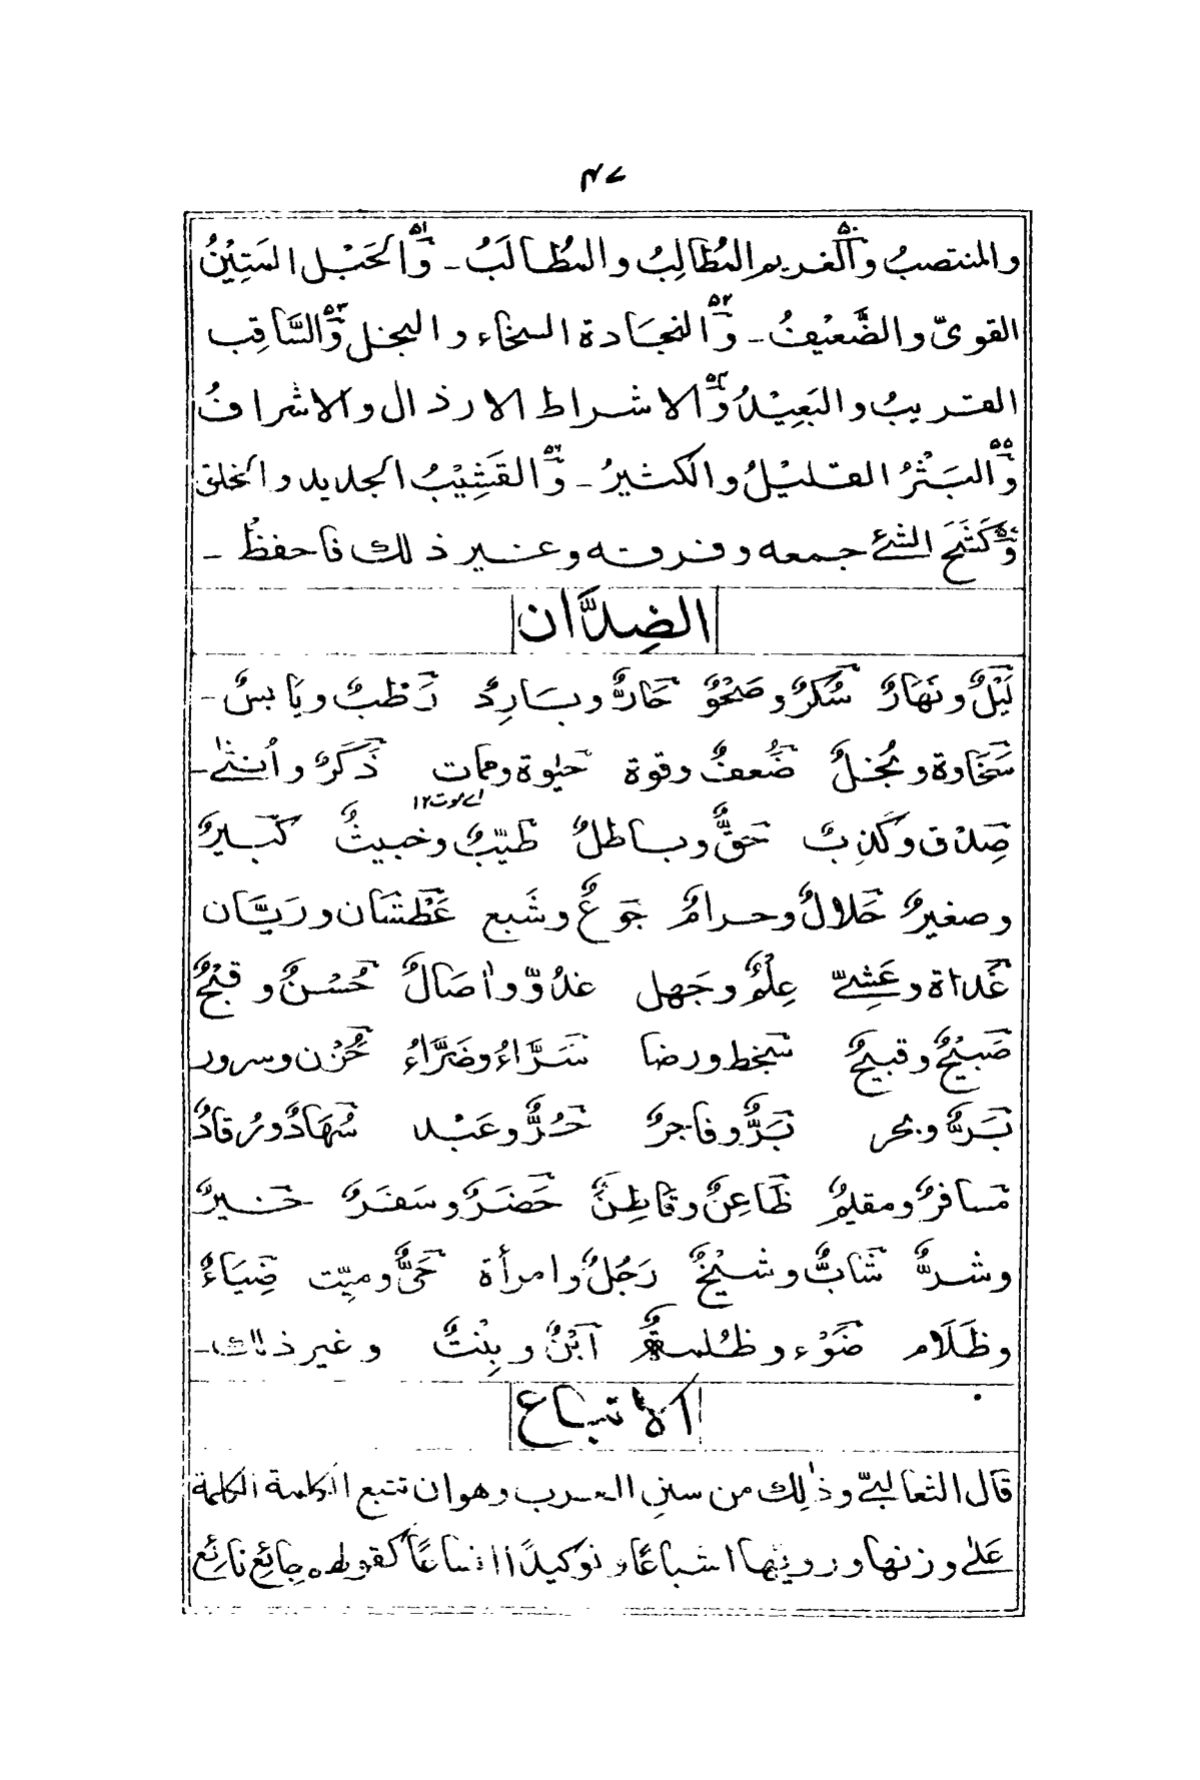 ۴۷
والمنتصبُ و۵۰الغريم المُطالِبُ والمُطالَبُ - و۵۱الحَبْل المَتِيْنُ
القوىّ والضَّعِيْفُ - و۵۲النجَادة السخاء والبخل و۵۳السَّاقِب
القريبُ والبَعِيْدُ و۵۴الاشراط الارذال والاشرافُ
و۵۵البَثْرُ القليْلُ والكثيرُ - و۵۶القَشِيْبُ الجديد والخلق
و۵۷كَثَحَ الشئ جمعه وفرقه وغير ذلك فاحفظْ -
الضِدَّان
لَيْلٌ ونَهَارٌ سُكرٌ وصَحْوٌ حَارٌّ وبَارِدٌ رَطْبٌ ويَابسٌ -
سَخَاوة وبُخلٌ ضُعفٌ وقوة حَيٰوة وممات ذَكَرٌ واُنثٰى -
اے موت۱۲
صِدْق وكَذِبٌ حَقٌّ وباطلٌ طَيّبٌ وخبيثٌ كَبيرٌ
وصغيرٌ حَلالٌ وحرامٌ جَوعٌ وشَبع عَطْشَان ورَيَّان
غَداة وعَشِىّ عِلْمٌ وجَهل غدُوّ واٰصَالٌ حُسْنٌ وقبْحٌ
صَبِيْحٌ وقبيحٌ سَخط ورضا سَرَّاءُ وضَرَّاءُ حُزْن وسرور
بَرٌّ وبحر بَرٌّ وفاجرٌ حُرٌّ وعَبْد سُهَادٌ ورُقادٌ
مُسافرٌ ومقيمٌ ظَاعِنٌ وقَاطِنٌ حَضَرٌ وسَفَرٌ خَيرٌ
وشرٌّ شَابٌّ وشَيْخٌ رَجُلٌ وامرأة حَىٌّ وميّت ضِيَاءٌ
وظَلَام ضَوْء وظُلمةٌ اَبْنٌ وبِنْتٌ وغير ذلك -
الاتباع
قال الثعالبىّ وذٰلك من سننِ العرب وهو ان تتبع الكلمة الكلمة
عَلٰى وزنها ورويّها اشباعًا وتوكيدًا اتساعًا كقولهم جائِع نائِع